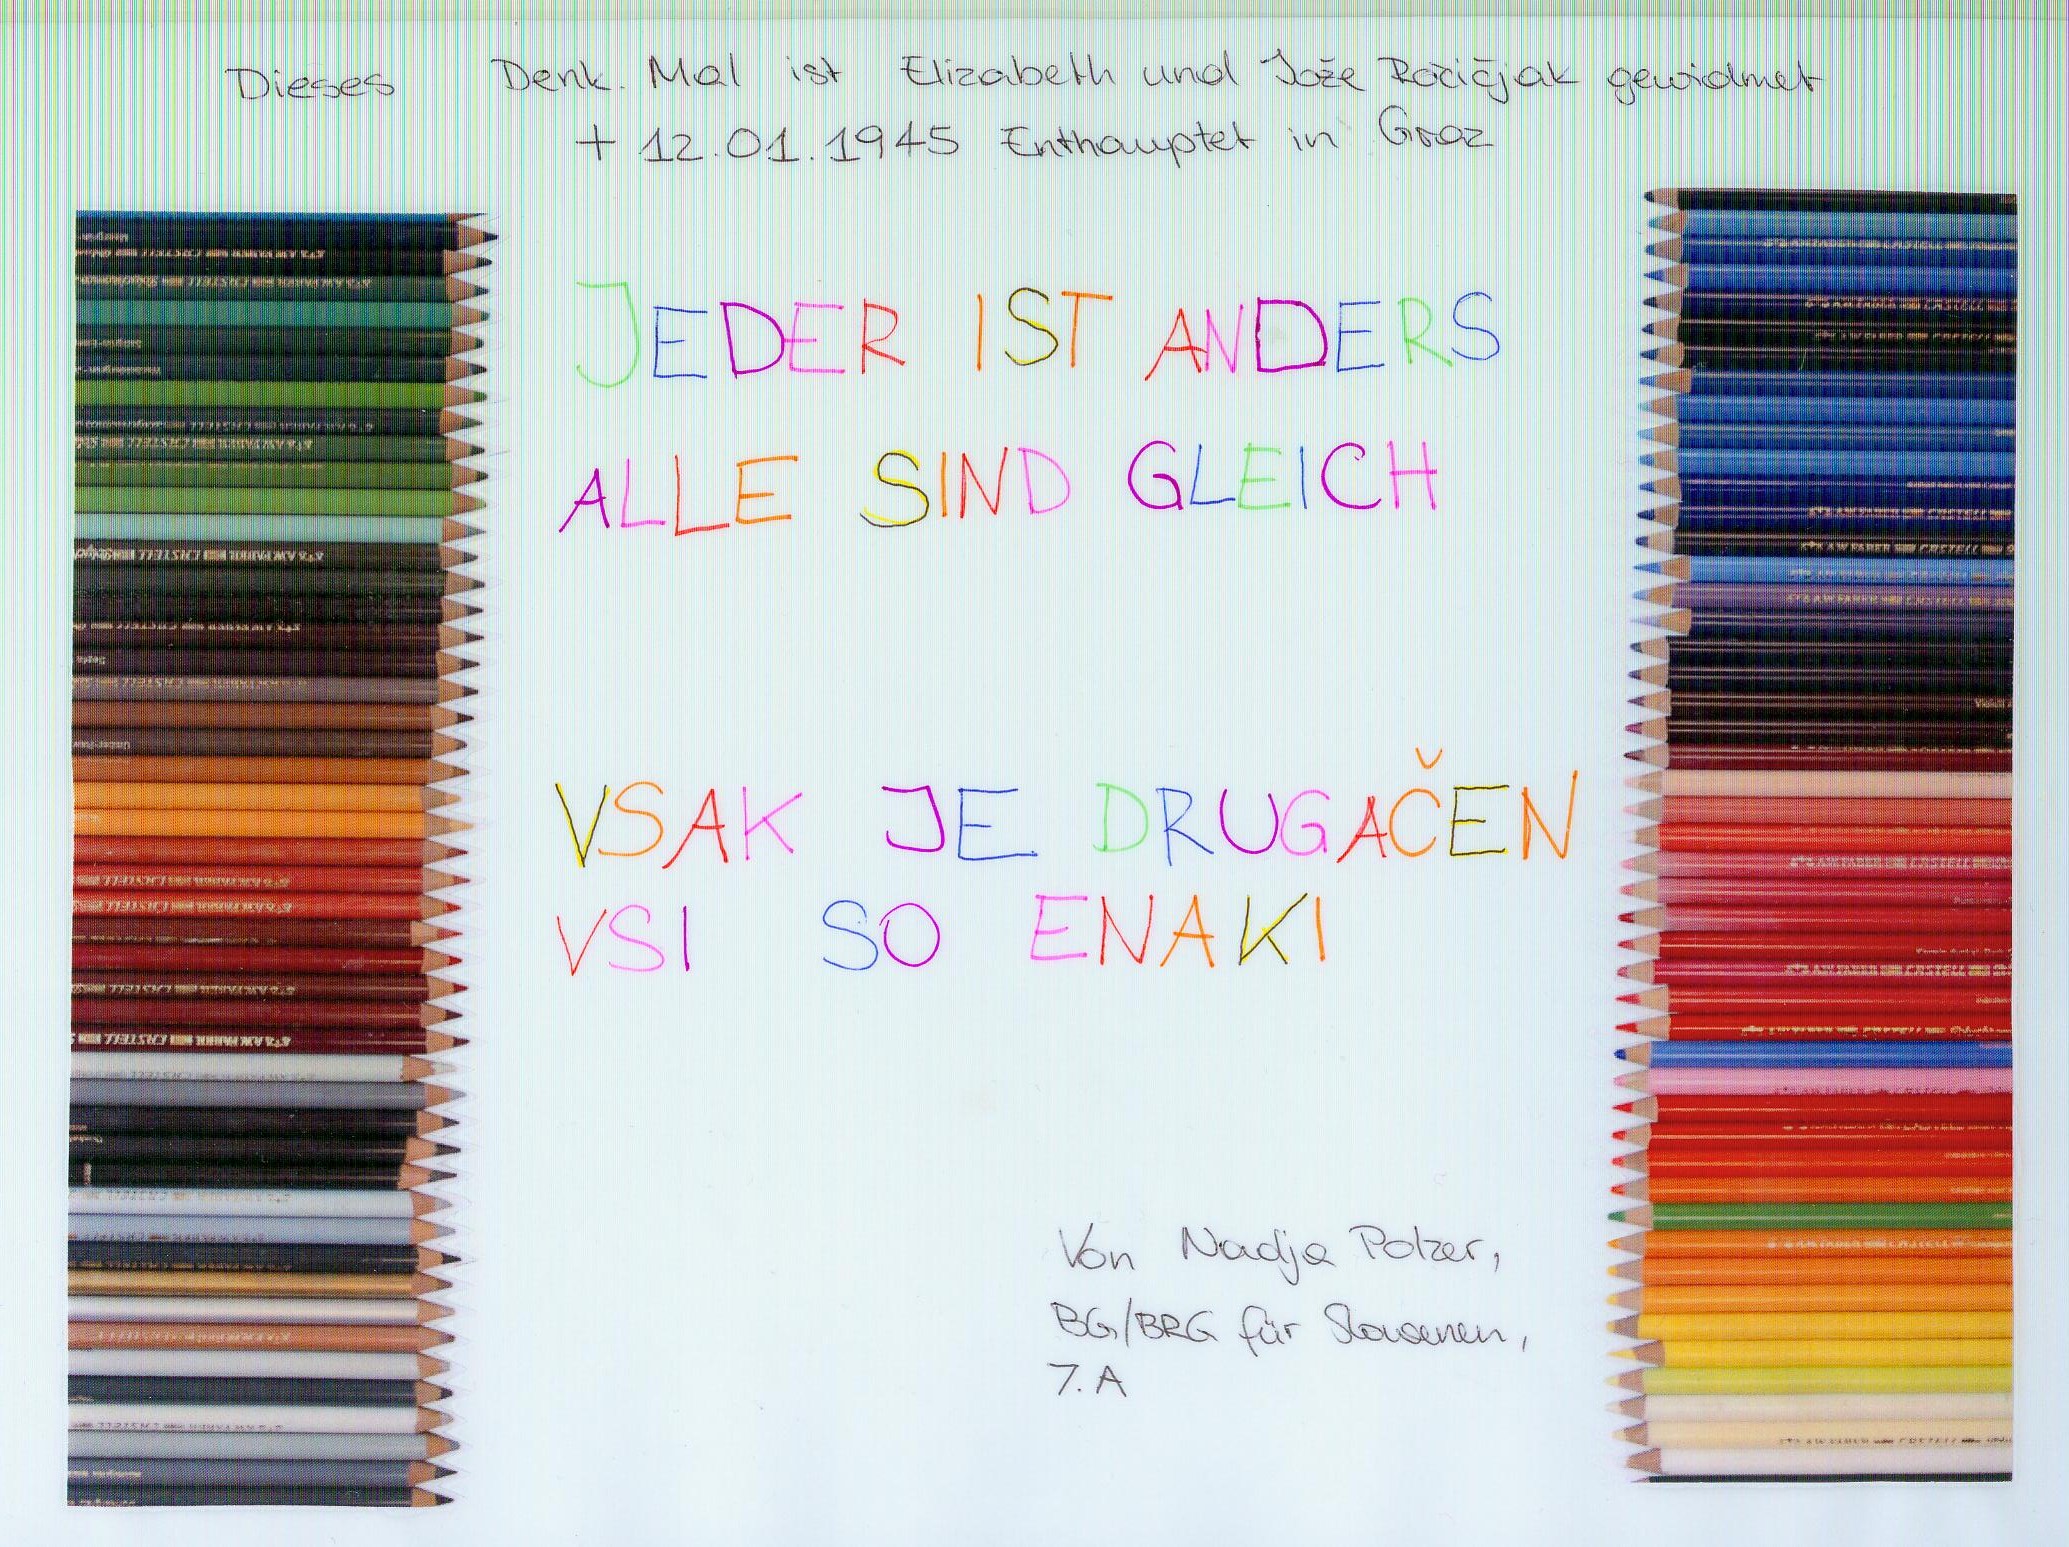 Dieses Denk.Mal ist Elizabeth und Jože Ročičjak gewidmet
+ 12.01.1945 Enthauptet in Graz
JEDER IST ANDERS
ALLE SIND GLEICH
VSAK JE DRUGAČEN
VSI SO ENAKI
Von Nadja Polzer,
BG/BRG für Slowenen,
7.A